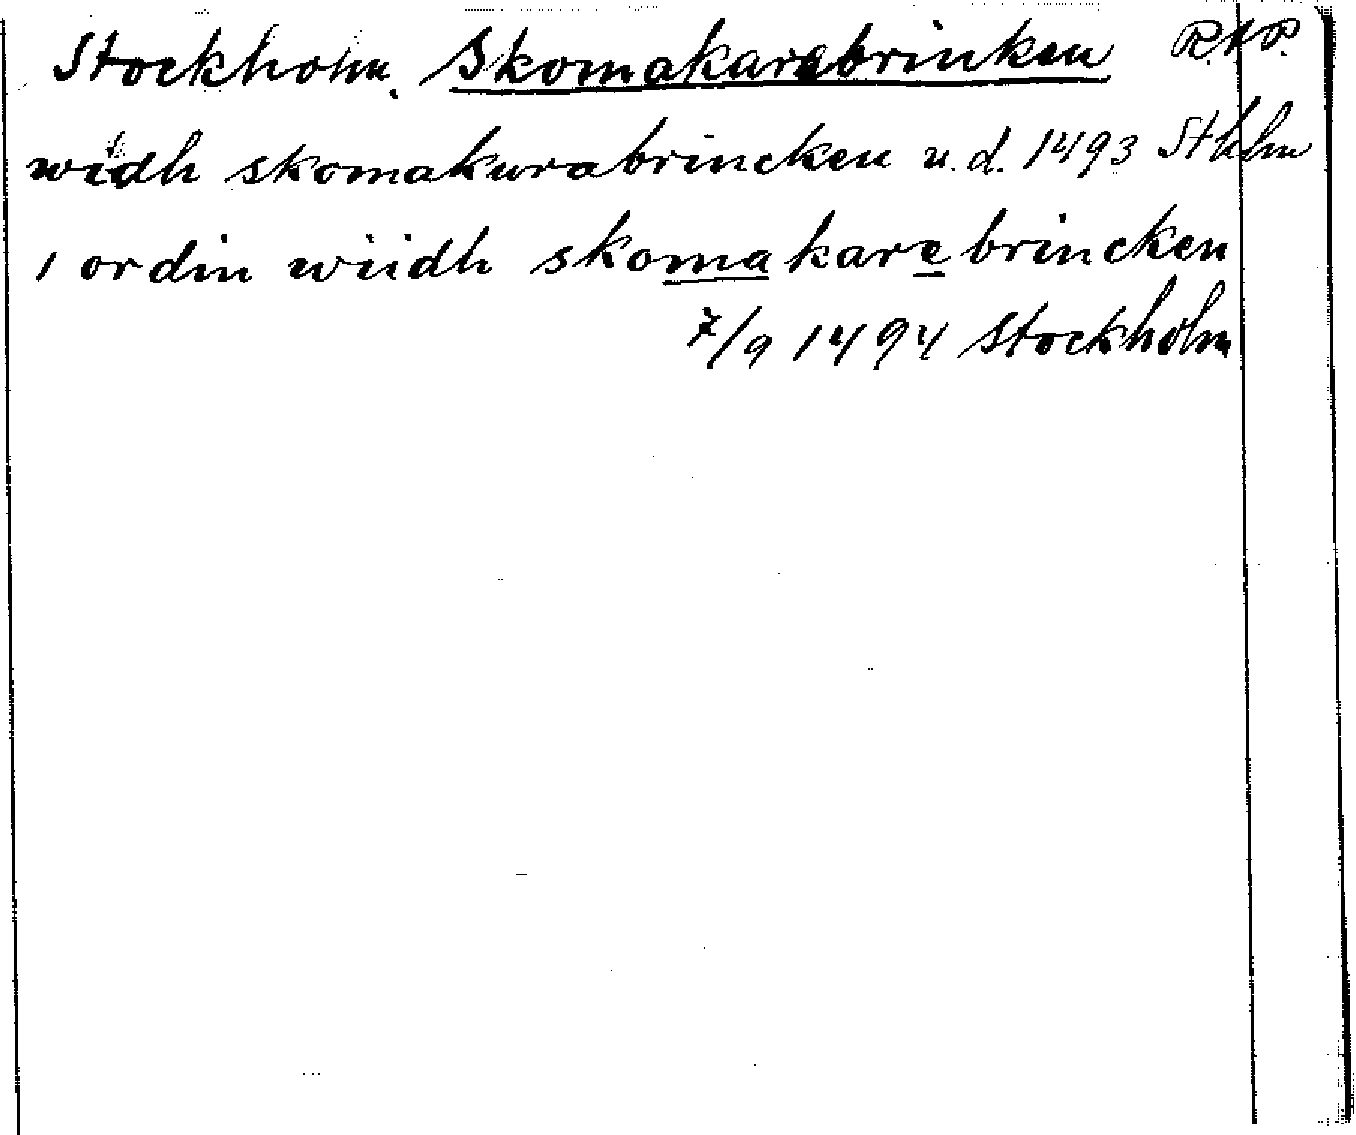 Stockholm. Skomakarebrinken R.A.P.
widh skomakarabrincken u.d. 1493 Sthlm
1 ordin wiidh skomakarebrincken
7/9 1494 Stockholm